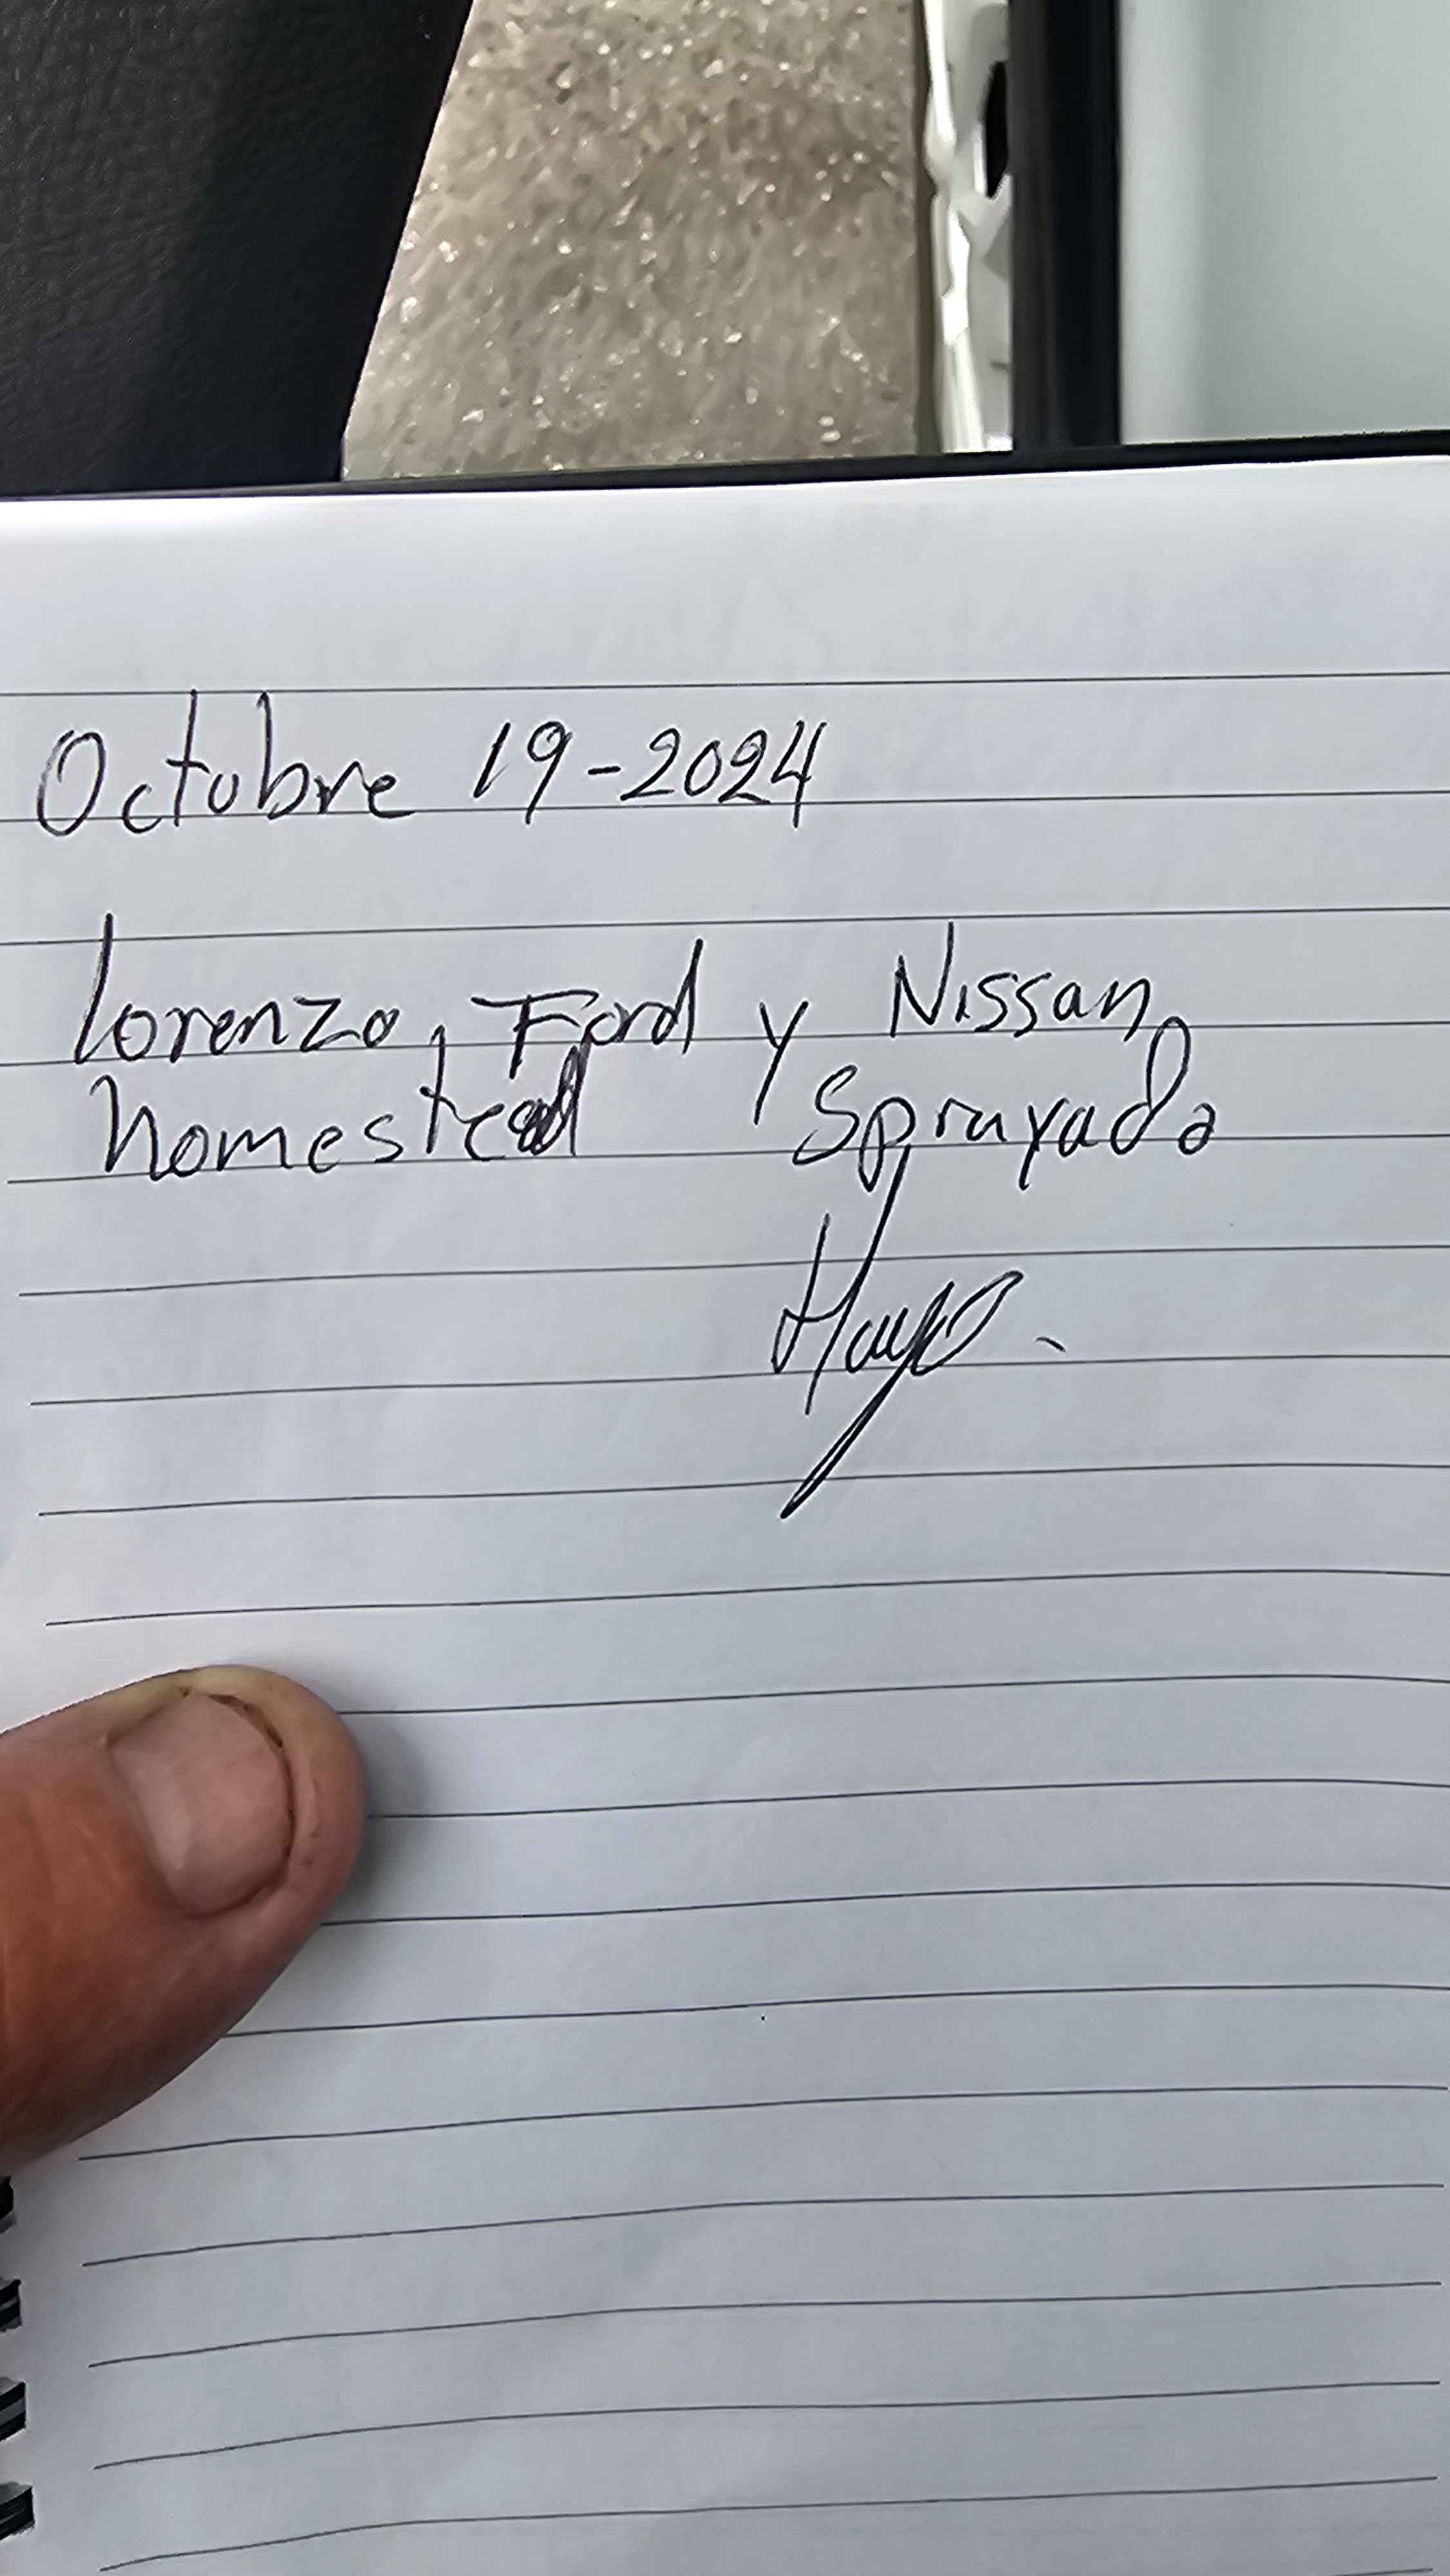 Octubre 19-2024
Lorenzo, Ford y Nissan
homestead Sprayado